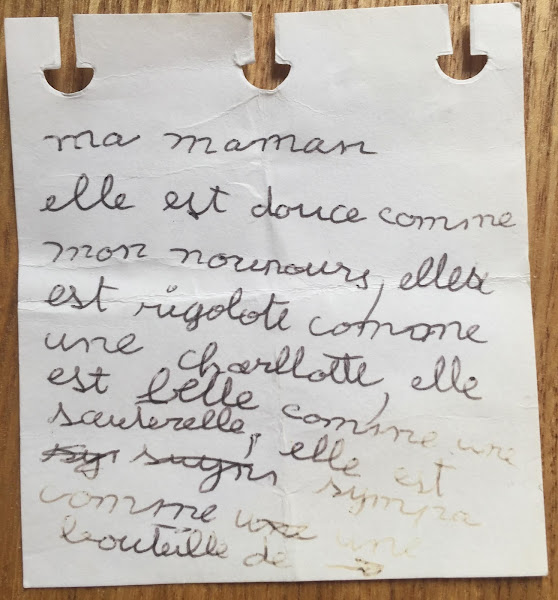 ma maman
elle est douce comme
mon nounours, elle
est rigolote comme
une charllotte, elle
est belle comme une
sauterelle, elle est
sympa
comme une
bouteille de